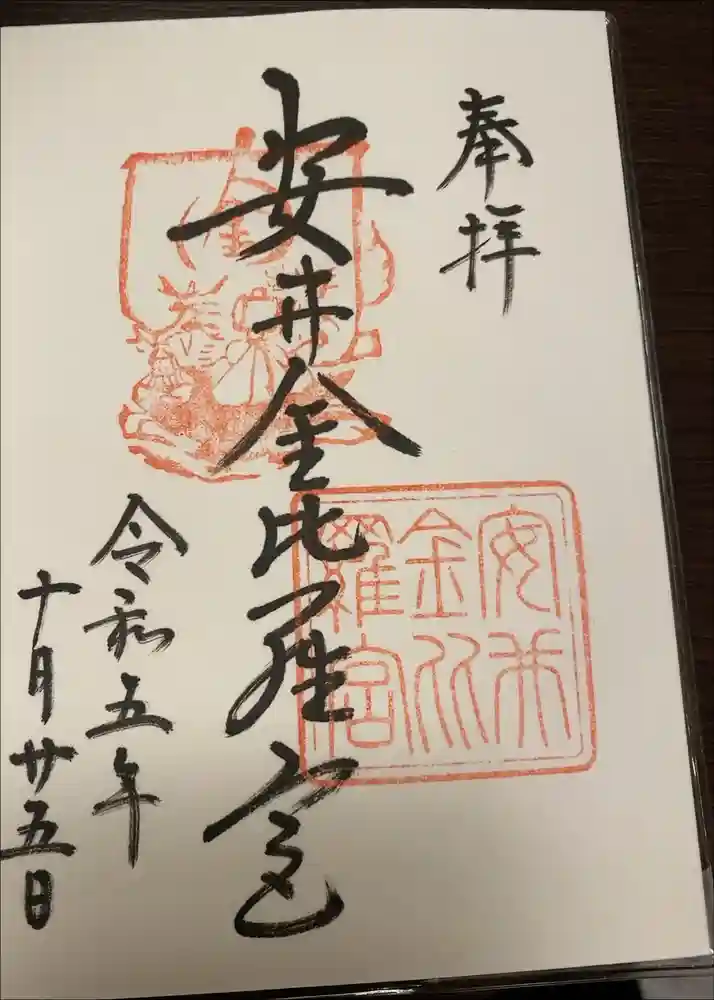 奉拝
安井金比羅宮
令和五年
十月廿五日
金
安井
金比
羅宮